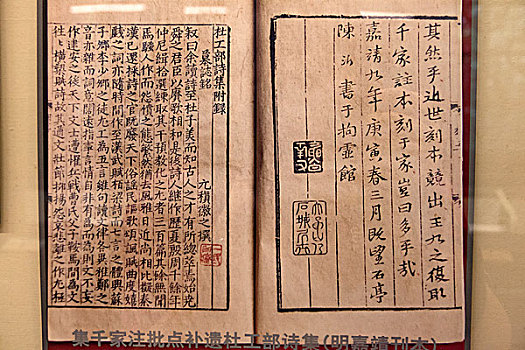 其然乎近世刻本競出王九之復取
千家註本刻于家豈曰多乎哉
嘉靖九年庚寅春三月既望石亭
陳沂書于拘虛館
杜工部詩集附錄
墓誌銘
元稹微之撰
叙曰余讀詩至杜子美而知古人之才有所總萃焉始堯
舜之君臣以賡歌相和是後詩人繼作歷夏殷周千餘年
仲尼緝拾選練取其干預教化之尤者三百篇其餘無聞
焉騷人作而怨憤之態繁然猶去風雅日近尚相比擬秦
漢已還採詩之官既廢天下俗謡民謳歌頌諷賦曲度嬉
戲之詞亦隨時間作至漢武賦栢梁詩而七言之體興蘇
子卿李少卿之徒尤工為五言雖句讀文律各異雅鄭之
音亦雜而詞意闊遠指事言情自非有為而為則文不妄
作建安之後天下文士遭罹兵戰曹氏父子鞍馬間為文
往往橫槊賦詩故其遒文壯節抑揚怨哀悲離之作尤極
集千家注批点补遗杜工部诗集(明嘉靖刊本)